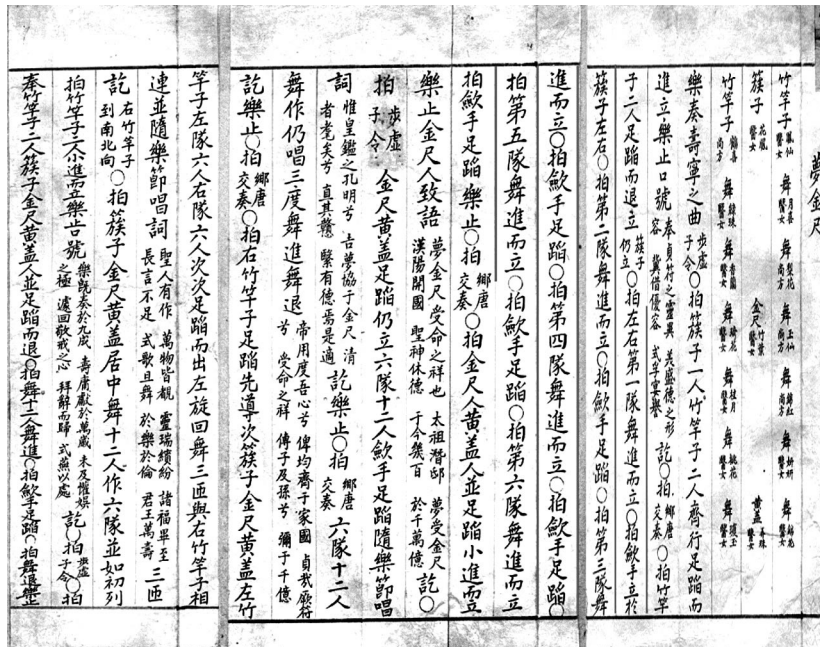 夢金尺
竹竿子 鳳仙 醫女 舞 月喜 醫女 舞 梨花 尚方 舞 玉仙 尚方 舞 錦紅 尚方 舞 妍妍 醫女 舞 錦花 醫女
簇子 花鳳 醫女 金尺 竹葉 醫女 黃盖 春珠 醫女
竹竿子 錦喜 尚方 舞 錦珠 醫女 舞 香蘭 醫女 舞 花 醫女 舞 桂月 醫女 舞 桃花 醫女 舞 瓊玉 醫女
樂奏壽寧之曲 步虛子令 ○拍簇子一人竹竿子二人齊行足蹈而
進立樂止口號 奉貞符之靈異 美盛德之形容 冀借優容 式孚宴譽 訖○拍 鄉唐交奏 ○拍竹竿
子二人足蹈而退立 簇子仍立 ○拍左右第一隊舞進而立○拍斂手立於
簇子左右○拍第二隊舞進而立○拍斂手足蹈○拍第三隊舞
進而立○拍斂手足蹈○拍第四隊舞進而立○拍斂手足蹈○
拍第五隊舞進而立○拍斂手足蹈○拍第六隊舞進而立
拍斂手足蹈樂止○拍 鄉唐交奏 ○拍金尺人黃盖人並足蹈小進而立
樂止金尺人致語 夢金尺受命之祥也 太祖潛邸 夢受金尺 漢陽開國 聖神休德 于今幾百 於千萬億 訖○
拍 步虛子令 金尺黃盖足蹈仍立六隊十二人斂手足蹈隨樂節唱
詞 惟皇鑑之孔明兮 吉夢協于金尺 清者耄矣兮 直其戇 緊有德焉是適 訖樂止○拍 鄉唐交奏 六隊十二人
舞作仍唱三度舞進舞退 帝用度吾心兮 俾均齊于家國 貞哉厥符兮 受命之祥 傳子及孫兮 彌于千億
訖樂止○拍 鄉唐交奏 ○拍右竹竿子足蹈先導次簇子金尺黃盖左竹
竿子左隊六人右隊六人次次足蹈而出左旋回舞三匝與右竹竿子相
連並隨樂節唱詞 聖人有作 萬物皆覩 靈瑞繽紛 諸福畢至 長言不足 式歌且舞 於樂於倫 君王萬壽 三匝
訖 右竹竿子到南北向 ○拍簇子金尺黃盖居中舞十二人作六隊並如初列
拍竹竿子二人小進而立樂止口號 樂旣奏於九成 壽庸獻於萬歲 未及懽娛之極 遽回敬戒之心 拜辭而歸 式燕以處 訖○拍 步虛子令 ○拍
奉竹竿子二人簇子金尺黃盖人並足蹈而退○拍舞十二人舞進○拍斂手足蹈○拍舞退樂止